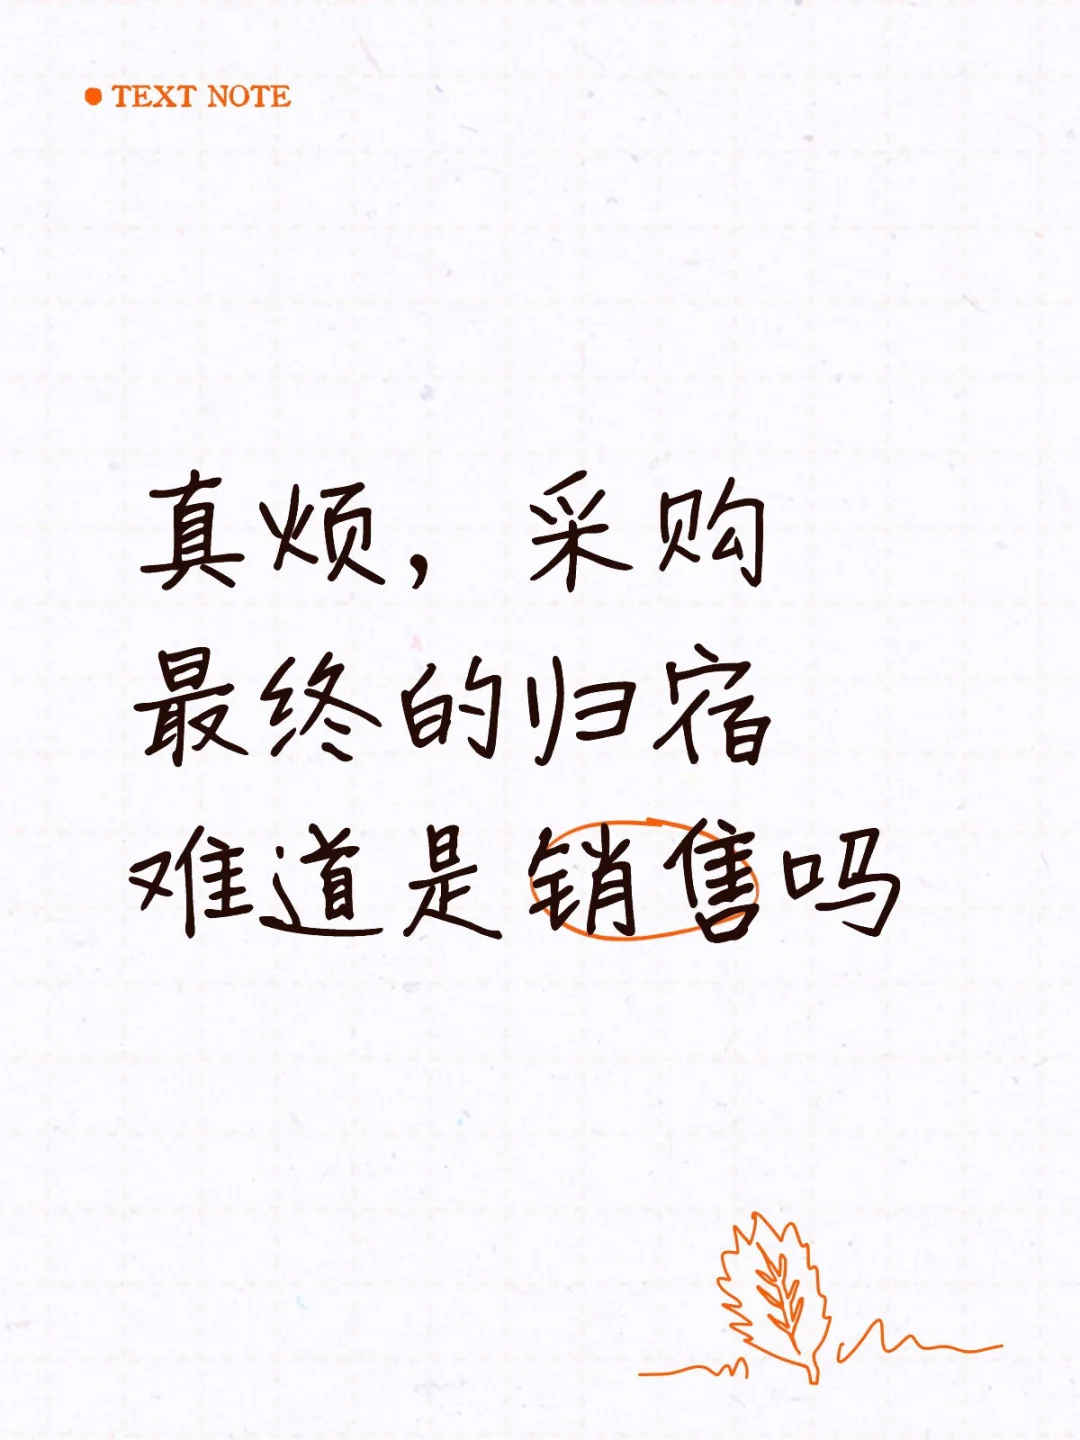 TEXT NOTE
真烦，采购
最终的归宿
难道是销售吗